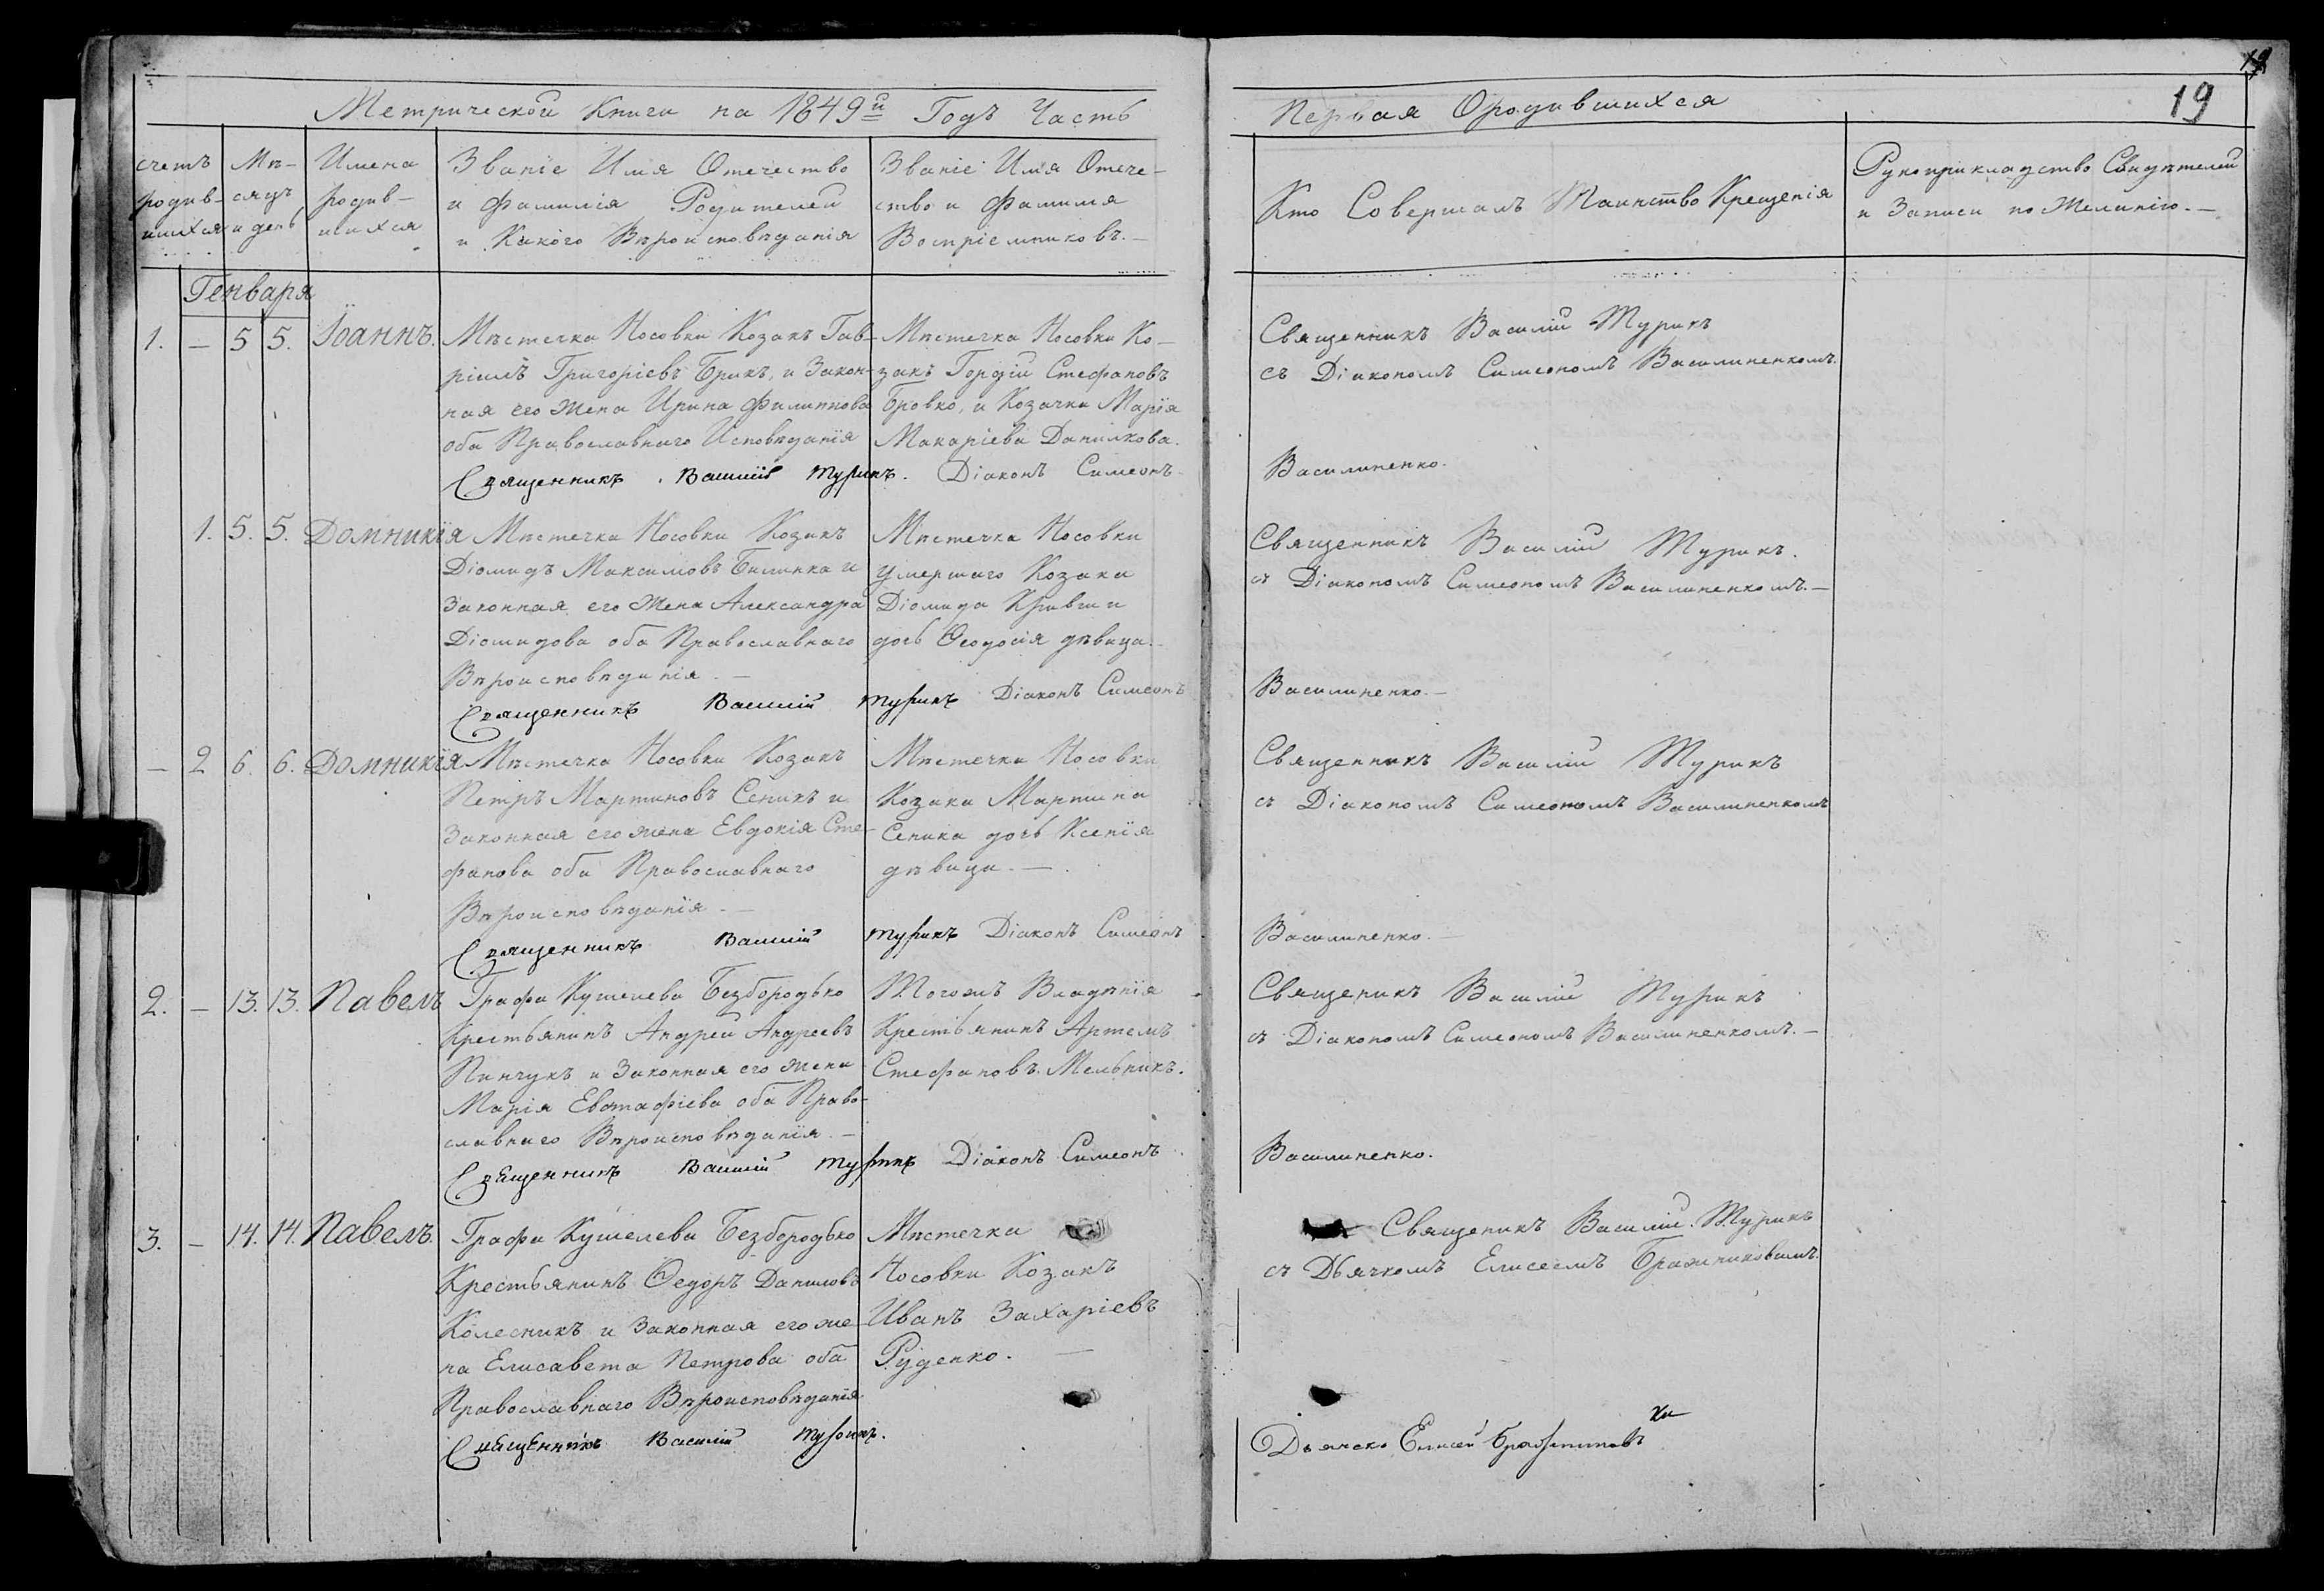 19
19
Метрической Книги на 1849й Годъ Часть
Первая О родившихся
счетъ
родив-
шихся
Мѣ-
сяцъ
и день
Имена
родив-
шихся
Званіе Имя Отечество
и Фамилія Родителей
и Какого Вѣроисповѣданія
Званіе Имя Отече-
ство и Фамилія
Воспріемниковъ. —
Кто Совершалъ Таинство Крещенія
Рукоприкладство Свидѣтелей
и Записи по Желанію. —
Генваря
1. — 5 5. Іоаннъ.
Мѣстечка Носовки Козакъ Гав-
ріилъ Григоріевъ Брикъ, и Закон-
ная его Жена Ирина Филиппова
оба Православнаго Исповѣданія
Мѣстечка Носовки Ко-
закъ Гордій Стефановъ
Бровко, и Козачка Марія
Макаріева Данилкова.
Священникъ Василій Турикъ
съ Діакономъ Симеономъ Василиненкомъ.
Священникъ Василій Турикъ. Діаконъ Симеонъ
Василиненко.
1. 5. 5. Домникія
Мѣстечка Носовки Козакъ
Діомидъ Максимовъ Билинка и
Законная его Жена Александра
Діомидова оба Православнаго
Вѣроисповѣданія. —
Мѣстечка Носовки
умершаго Козака
Діомида Кривши
дочь Ѳеодосія дѣвица. —
Священникъ Василій Турикъ.
съ Діакономъ Симеономъ Василиненкомъ. —
Священникъ Василій Турикъ Діаконъ Симеонъ
Василиненко. —
— 2 6. 6. Домникія
Мѣстечка Носовки Козакъ
Петръ Мартиновъ Сеникъ и
Законная его жена Евдокія Сте-
фанова оба Православнаго
Вѣроисповѣданія. —
Мѣстечка Носовки
Козака Мартина
Сеника дочь Ксенія
дѣвица. —
Священникъ Василій Турикъ
съ Діакономъ Симеономъ Василиненкомъ
Священникъ Василій Турикъ Діаконъ Симеонъ
Василиненко. —
2. — 13. 13. Павелъ
Графа Кушелева Безбородько
Крестьянинъ Андрей Андреевъ
Пинчукъ и Законная его Жена
Марія Евстафіева оба Право-
славнаго Вѣроисповѣданія. —
Тогожъ Владѣнія
Крестьянинъ Артемъ
Стефановъ Мельникъ.
Священикъ Василій Турикъ
съ Діакономъ Симеономъ Василиненкомъ. —
Священникъ Василій Турикъ Діаконъ Симеонъ
Василиненко.
3. — 14. 14. Павелъ.
Графа Кушелева Безбородько
Крестьянинъ Ѳедоръ Даниловъ
Колесникъ и Законная его же-
на Елисавета Петрова оба
Православнаго Вѣроисповѣданія
Мѣстечка
Носовки Козакъ
Иванъ Захаріевъ
Руденко. —
Священикъ Василій Турикъ
съ Дьячкомъ Елисеемъ Бражниковымъ.
Священникъ Василій Турикъ.
Дьячекъ Елисей Бражниковъ